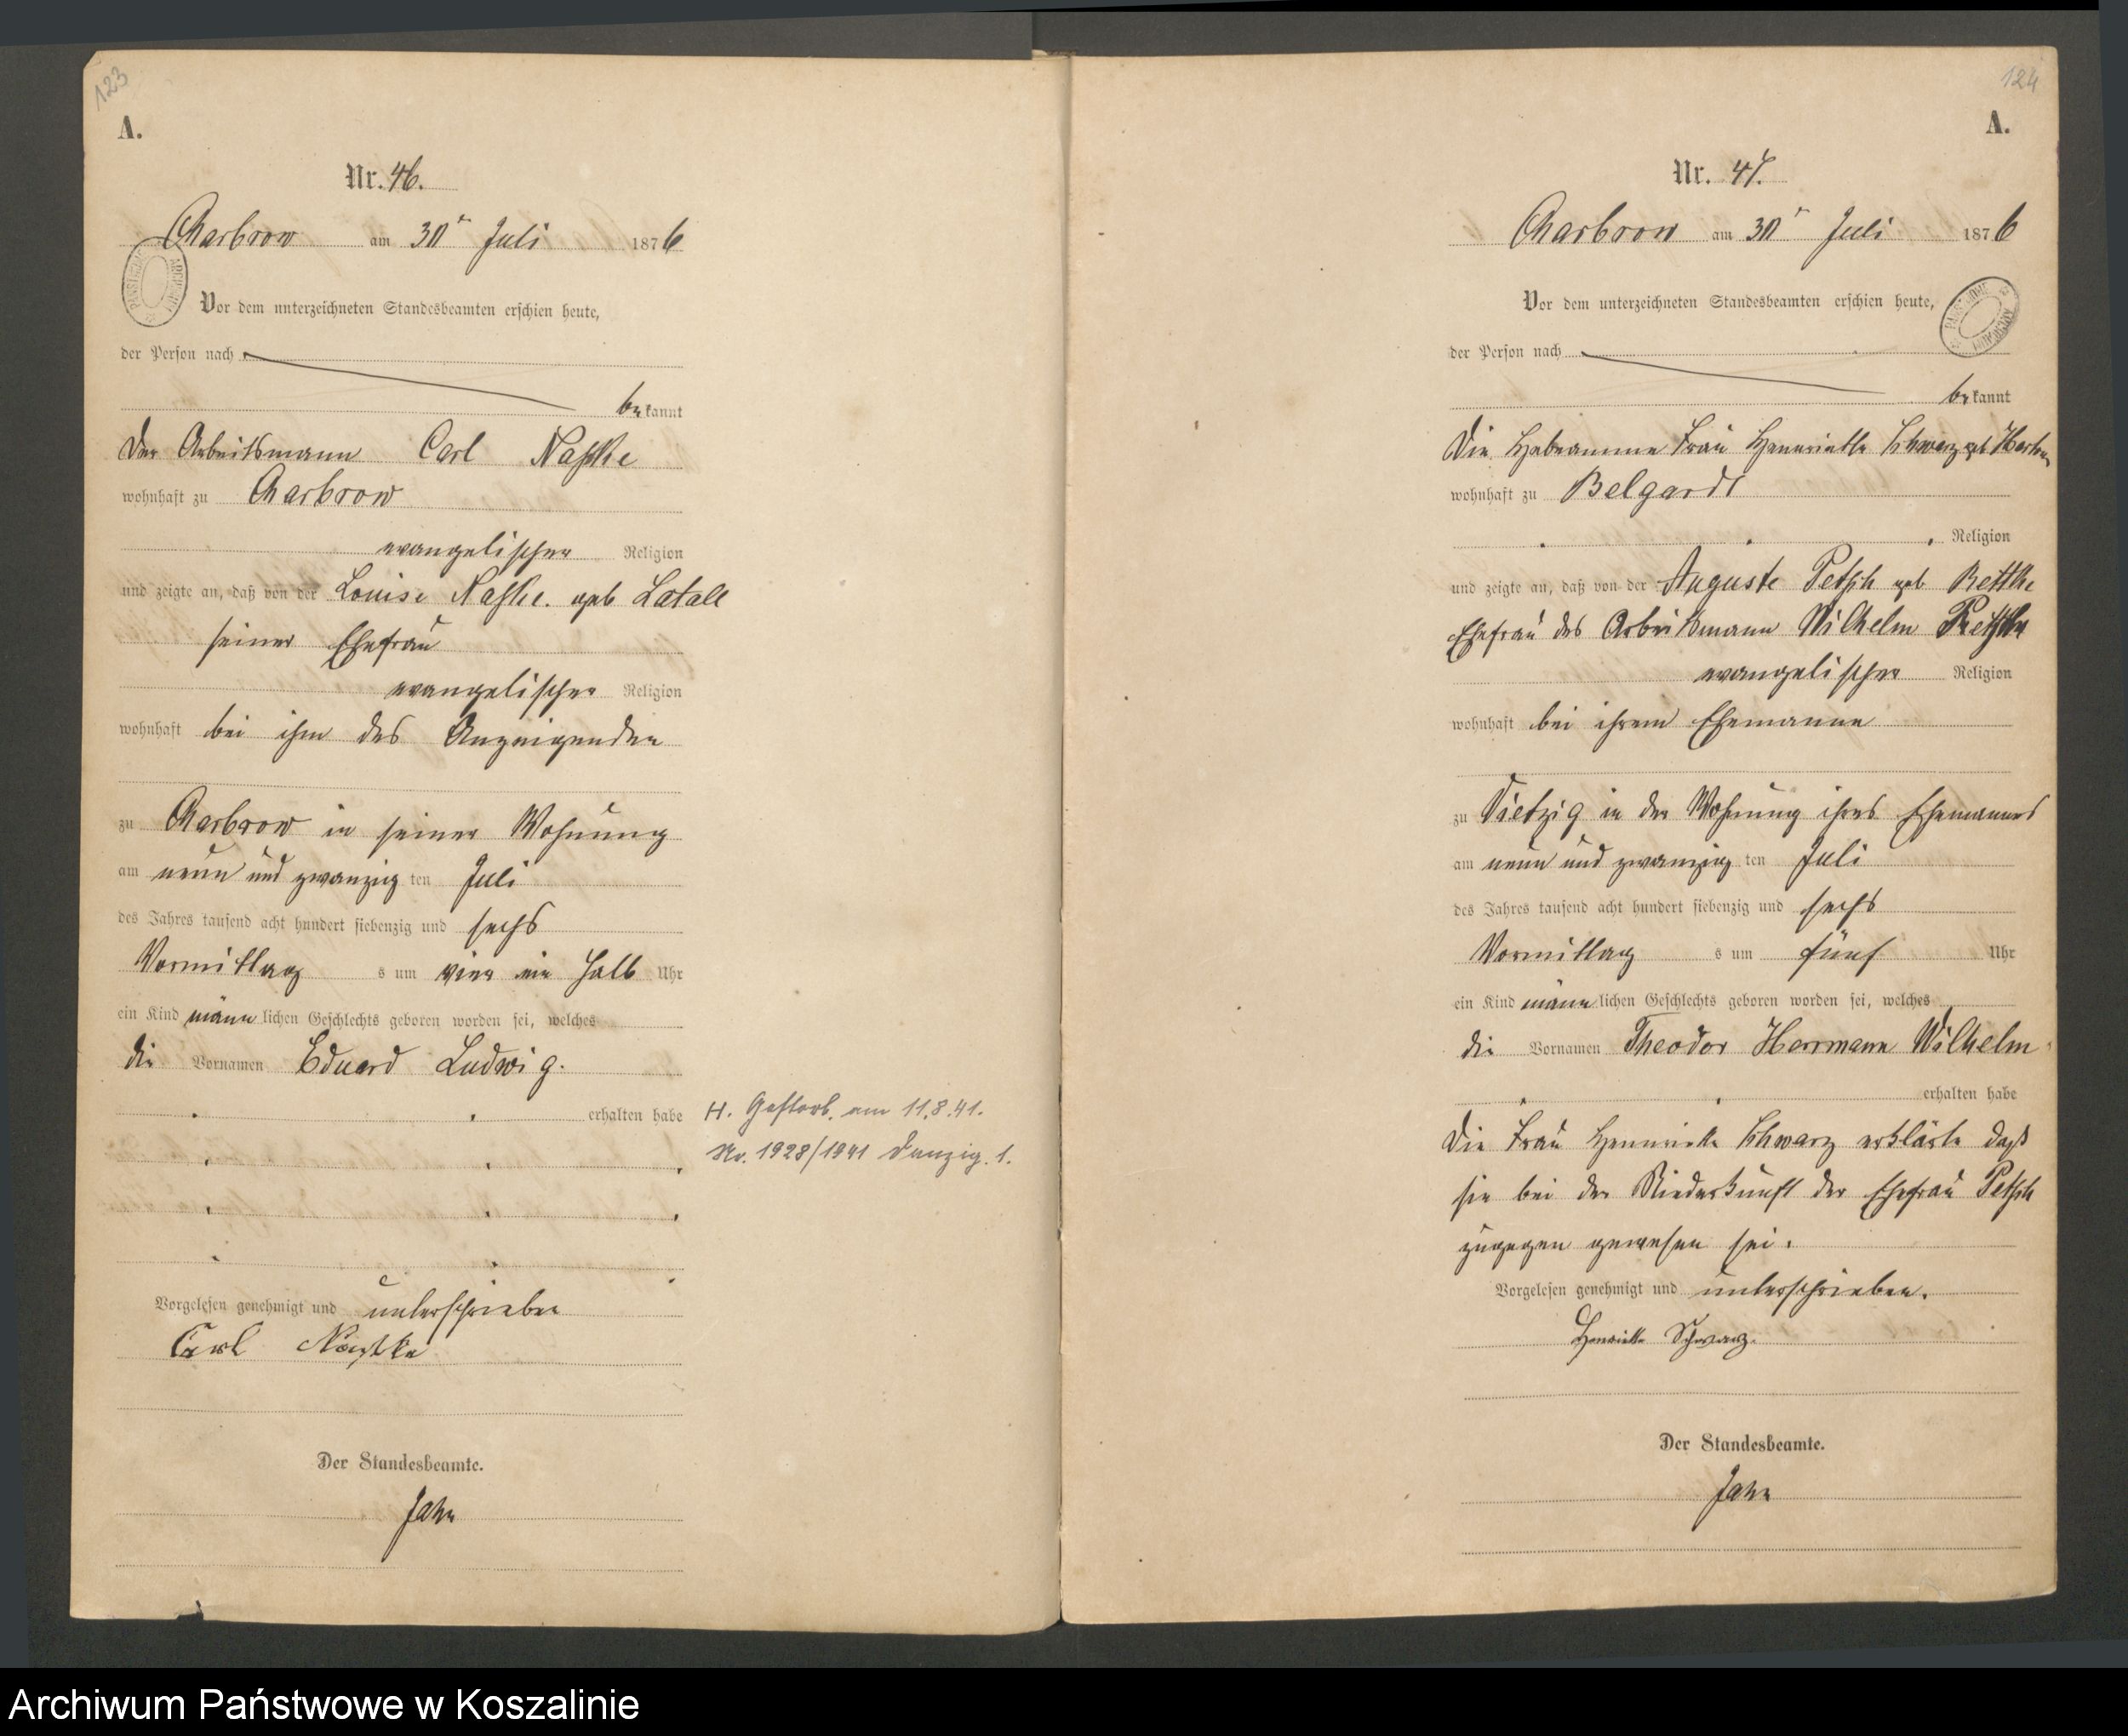 123
A.
Nr. 46.
Charbrow am 30ᵗ Juli 1876
Vor dem unterzeichneten Standesbeamten erschien heute,
der Person nach
bekannt
Der Arbeitsmann Carl Naßke
wohnhaft zu Charbrow
evangelischer Religion
und zeigte an, daß von der Louise Naßke. geb Latall
seiner Ehefrau
evangelischer Religion
wohnhaft bei ihm des Anzeigenden
zu Charbrow in seiner Wohnung
am neun und zwanzig ten Juli
des Jahres tausend acht hundert siebenzig und sechs
Vormittag s um vier ein halb Uhr
ein Kind männlichen Geschlechts geboren worden sei, welches
die Vornamen Eduard Ludwig.
erhalten habe
H. Gestorb. am 11.8.41.
Nr. 1928/1941 Danzig. 1.
Vorgelesen genehmigt und unterschrieben
Carl
Der Standesbeamte.
Jahn
124
A.
Nr. 47.
Charbrow am 30ᵗ Juli 1876
Vor dem unterzeichneten Standesbeamten erschien heute,
der Person nach
bekannt
Die Hebeamme Frau Hennriette Schwarz geb
wohnhaft zu Belgard
Religion
und zeigte an, daß von der Auguste Petsch geb
Ehefrau des Arbeitsmann Wilhelm
evangelischer Religion
wohnhaft bei ihrem Ehemanne
zu Vietzig in der Wohnung ihres Ehemannes
am neun und zwanzig ten Juli
des Jahres tausend acht hundert siebenzig und sechs
Vormittag s um fünf Uhr
ein Kind männlichen Geschlechts geboren worden sei, welches
die Vornamen Theodor Herrmann Wilhelm
erhalten habe
Die Frau Hennriette Schwarz erklärte daß
sie bei der Niederkunft der Ehefrau Petsch
zugegen gewesen sei.
Vorgelesen genehmigt und unterschrieben.
Henriette Schwarz.
Der Standesbeamte.
Jahn
Archiwum Państwowe w Koszalinie